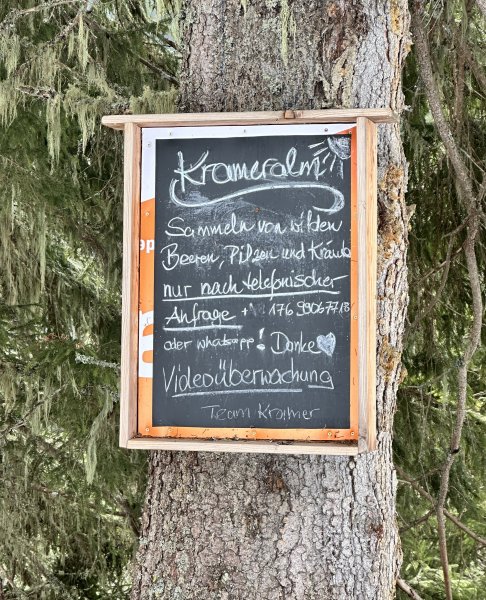 Krameralm
Sammeln von wilden
Beeren, Pilzen und Kräuter
nur nach telefonischer
Anfrage 176 99067718
oder whatsapp! Danke
Videoüberwachung
Team Kramer